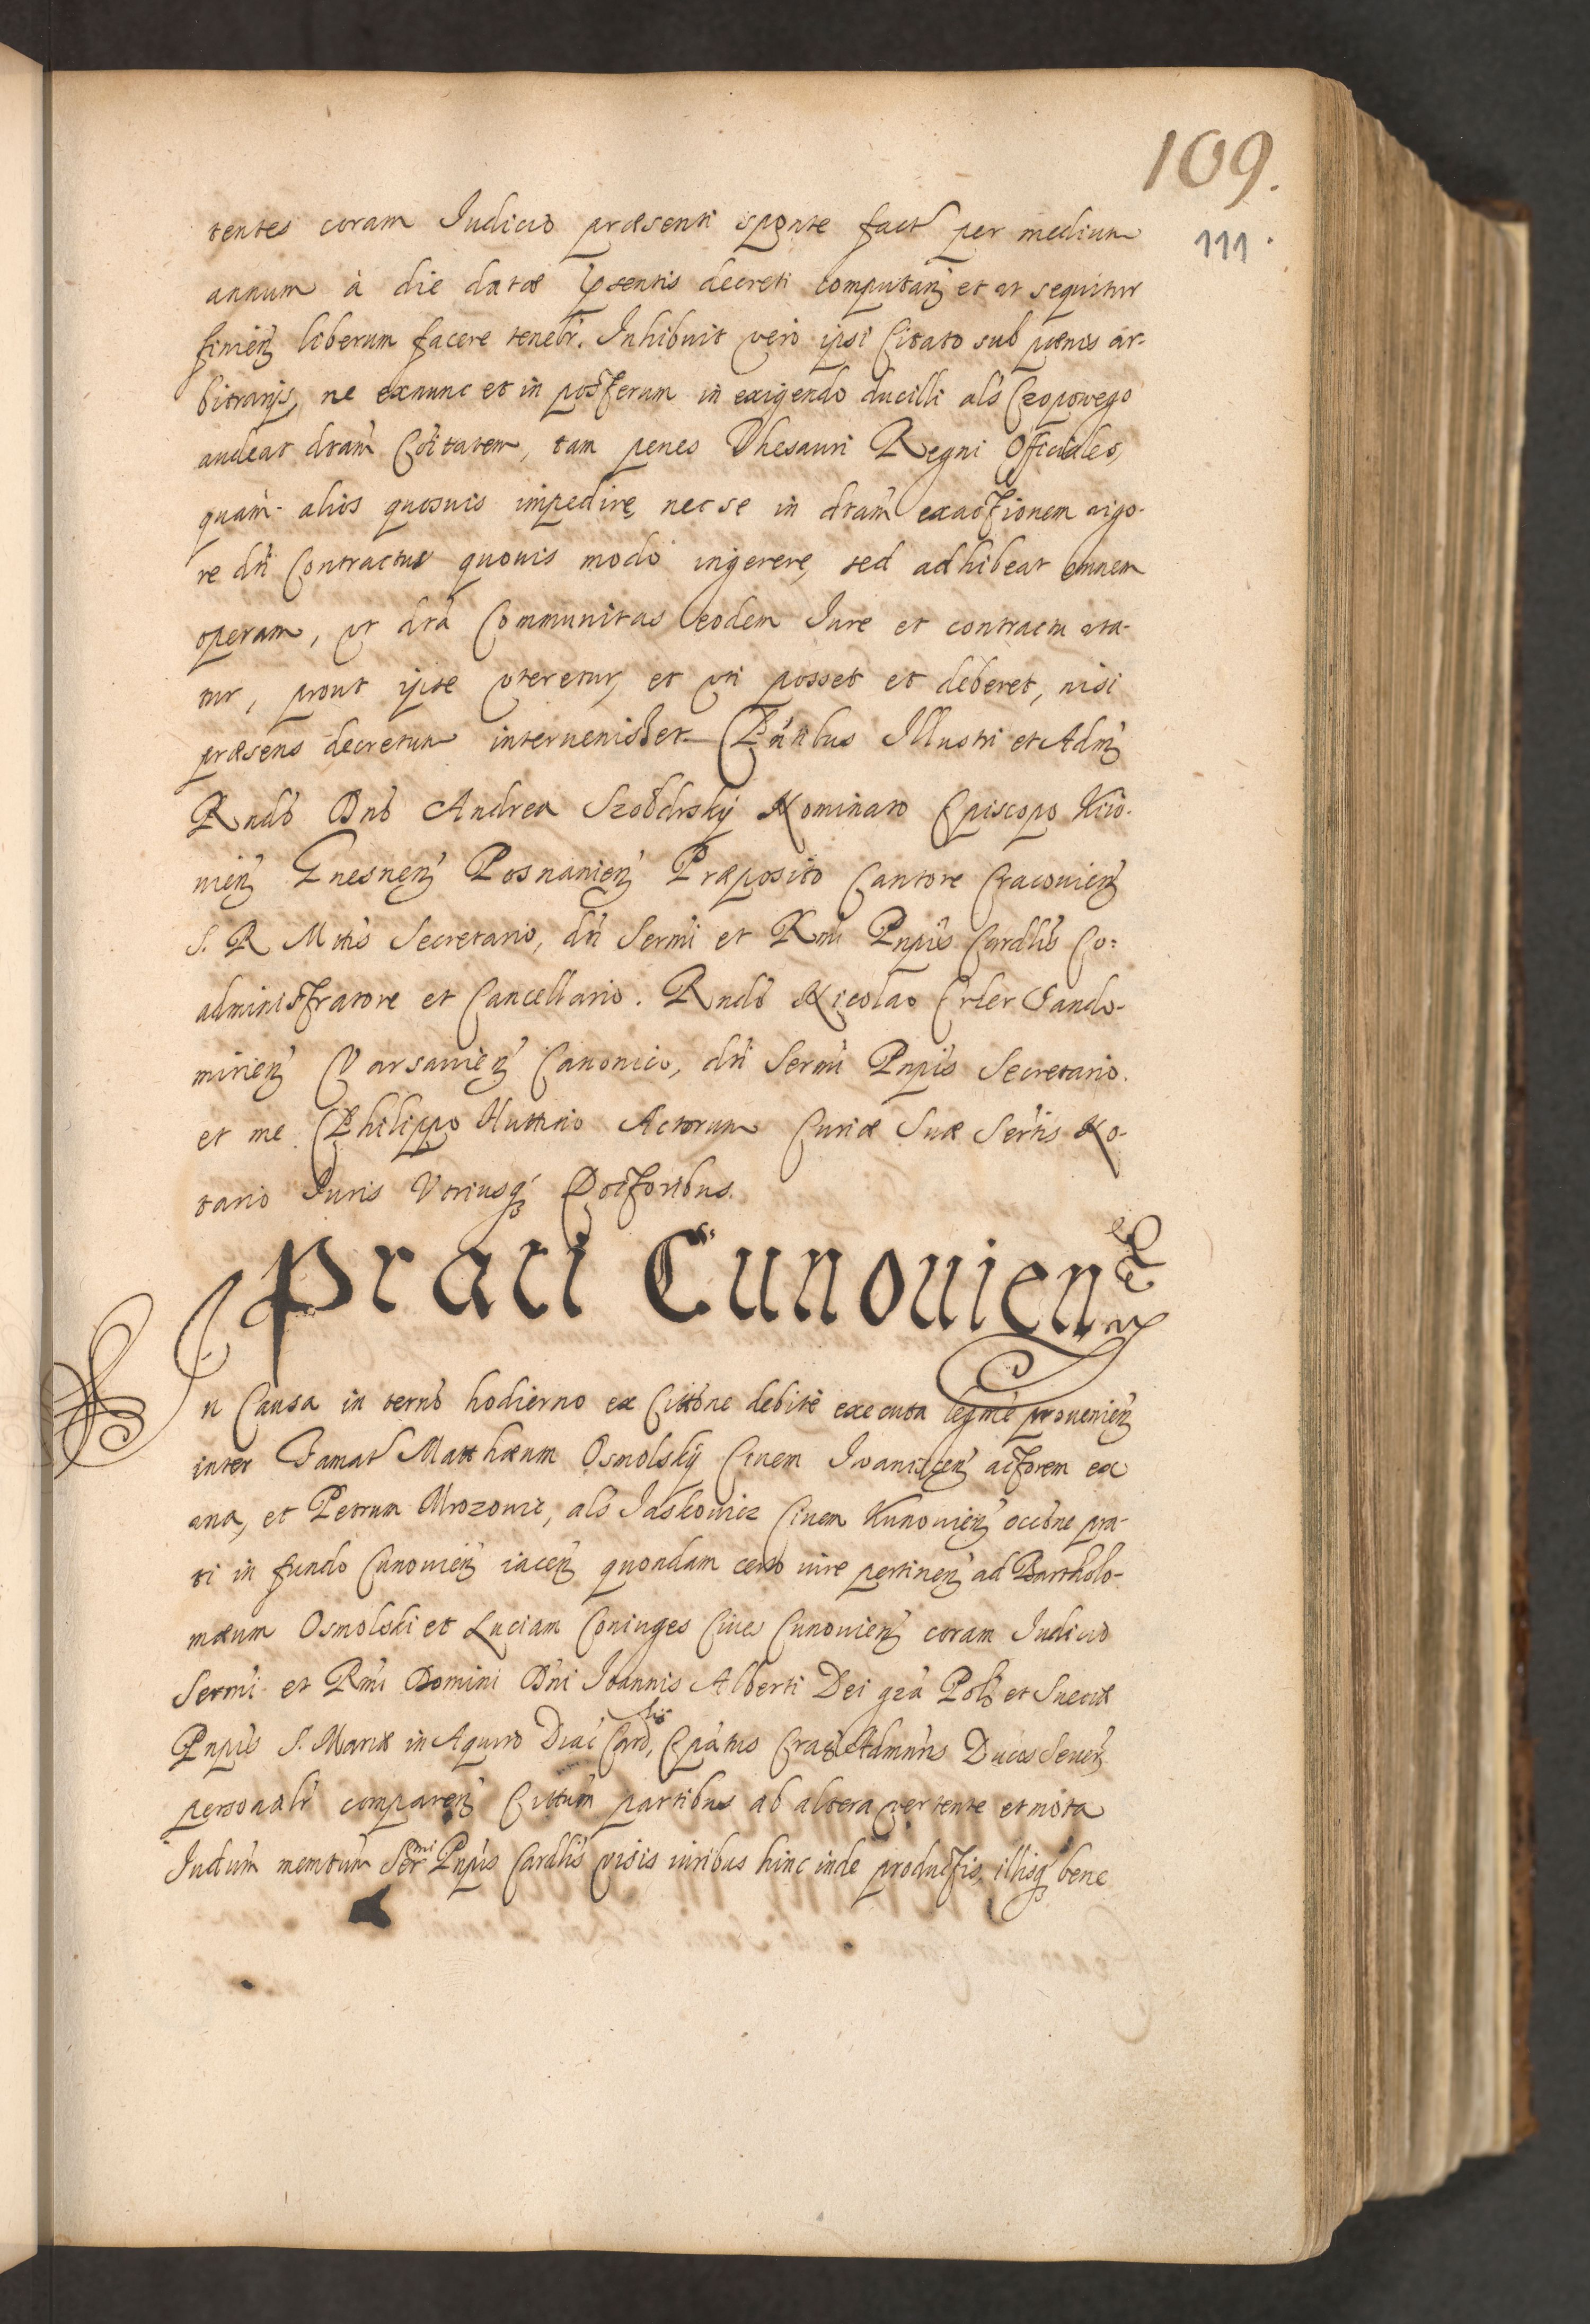 109.
111.
tentes coram Judicio præsenti sponte fact per medium
annum à die datæ pñtentis decreti computañ et ut sequitur
finień liberum facere tenebr. Inhibuit verò ipsi Citato sub pœnis ar-
bitrarijs, ne exnunc et in posterum in exigendo ducilli als Czopowego
audeat dtam Cõitatem, tam penes Thesauri Regni Officiales,
quàm alios quosuis impedire, nec se in dtam exactionem vigo-
re dti Contractus quouis modo ingerere, sed adhibeat omnem
operam, vt dta Communitas eodem Iure et contractu uta-
tur, prout ipse vteretur, et vti posset et deberet, nisi
præsens decretum interuenisset. Pñtibus Illustri et Adm
Rndo Dno Andrea Szołdrsky Nominato Episcopo Kiio-
uień Gnesneń Posnanień Præposito Cantore Cracouień
S. R Mttis Secretario, dti Sermi et Rmi Pnpis Cardlis Co=
administratore et Cancellario. Rndo Nicolao Erler Sando-
mirień Varsauień Canonico, dti Sermi Pnpis Secretario.
et me Philippo Huttinio Actorum Curiæ Suæ Sertis No-
tario Iuris Vtriusq Doctoribus.
Prati Cunouien
In Causa in termo hodierno ex Citttone debitè executa legmè prouenień
inter Famat Matthæum Osmolsky Ciuem Iwaniscen actorem ex
una, et Petrum Mrozowic, als Iaskowicz Ciuem Kunouień occõne pra-
ti in fundo Cunouień iaceń quondam certo iure pertineń ad Bartholo-
mæum Osmolski et Luciam Coniuges Ciues Cunouień coram Iudicio
Sermi et Rmi Domini Dni Ioannis Alberti Dei gra Pol et Sueciæ
Pnpis S. Mariæ in Aquiro Diac Card, Epatus Crac Admnris Ducis Seuer
personalr compareń Cittum partibus ab altera vertente et mota
Iudium memtum Sermi Pnpis Cardlis visis iuribus hinc inde productis, illisq bene